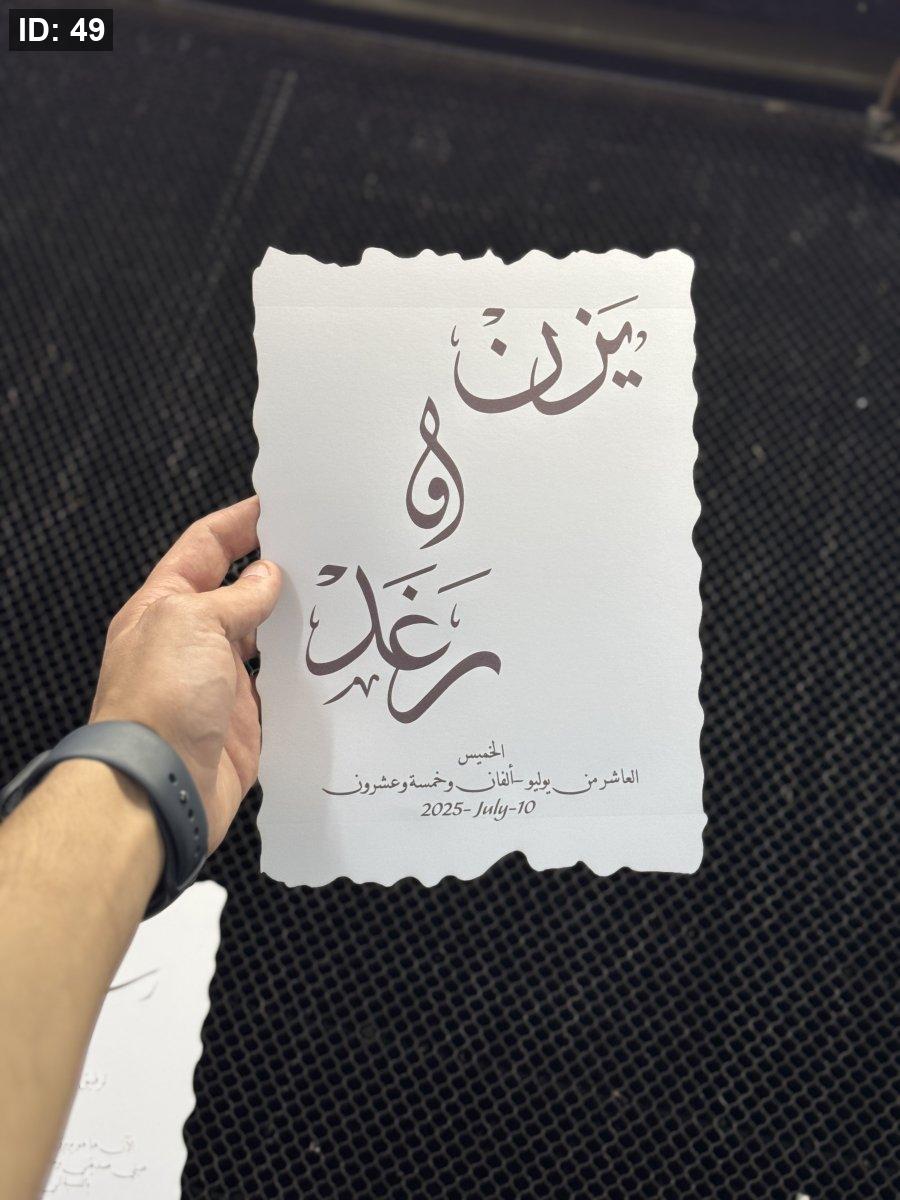 ID: 49
يزن
و
رغد
الخميس
العاشر من يوليو -ألفان وخمسة وعشرون
2025- July-10